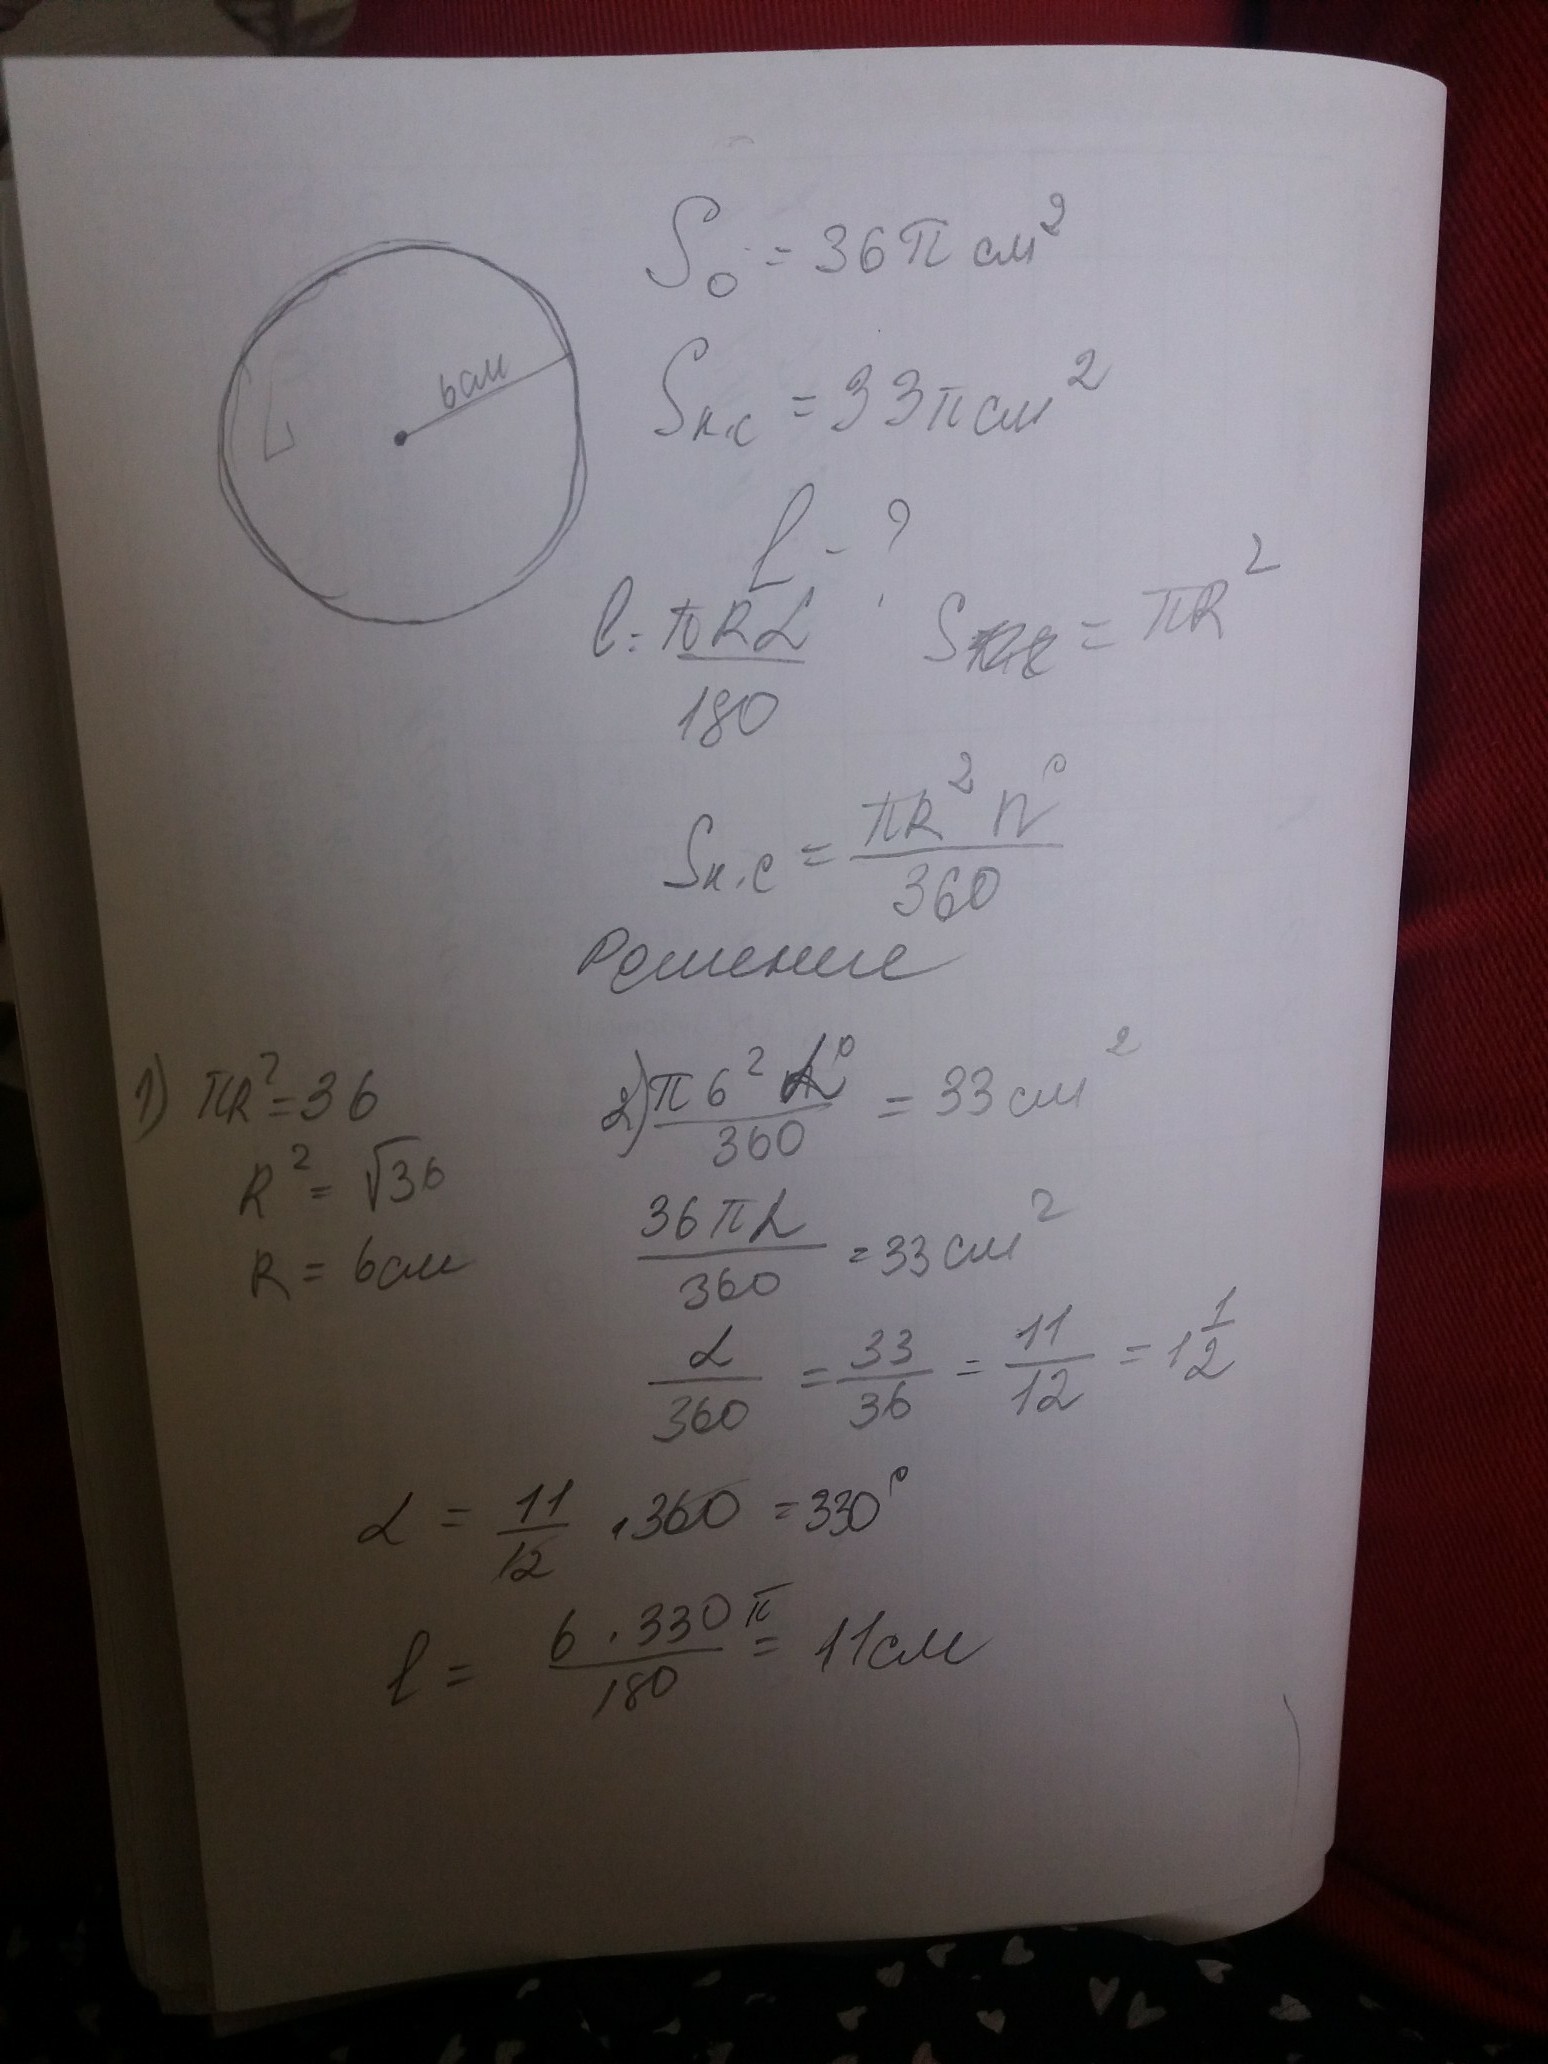 6см
S₀ = 36π см²
Sк.с = 33π см²
l - ?
l = πRα/180 S = πR²
Sк.с = πR² n°/360
Решение
1) πR² = 36
R² = √36
R = 6см
2) π6² α°/360 = 33 см²
36πα/360 = 33 см²
α/360 = 33/36 = 11/12 = 1 1/2
α = 11/12 · 360 = 330°
l = 6 · 330π/180 = 11 см